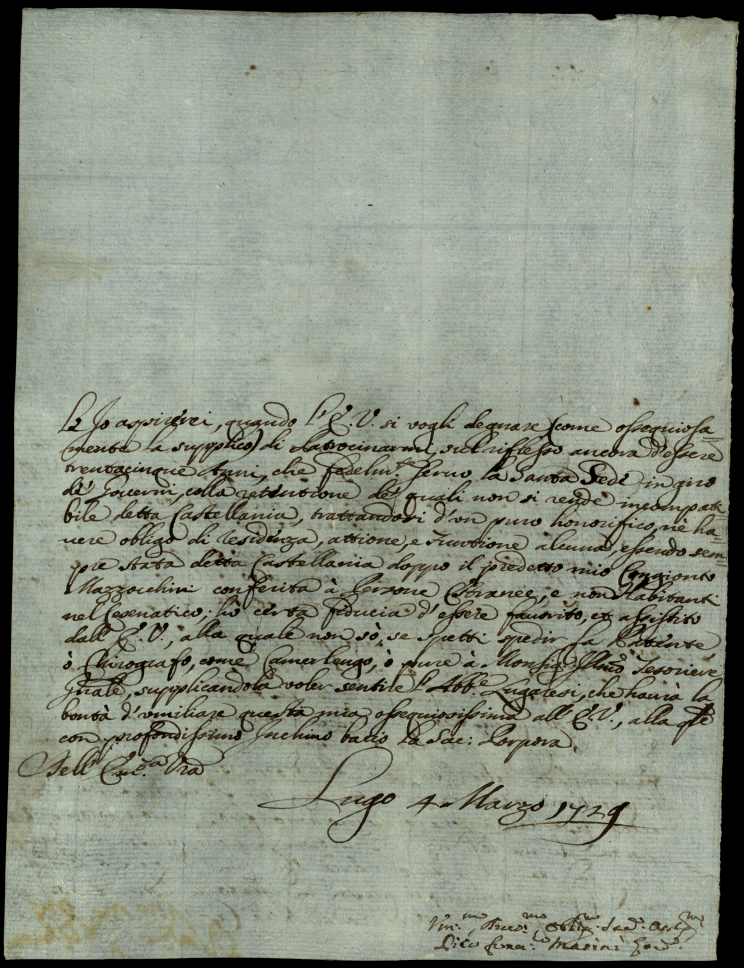 Io aspirerei, quando l'E. V. si vogli degnare (come ossequiosa=
mente la supplico) di Patrocinarmi, sul riflesso ancora d'essere
trentacinque Anni, che fedelm.te servo la Santa Sede in giro
de' Governi, colla retentione de' quali non si rende incompati=
bile detta Castellania, trattandosi d'un puro honorifico, nè ha=
vere obligo di residenza, attione, e Funtione alcuna, essendo sem=
pre stata detta Castellania doppo il predetto mio Congionto
Mazzocchini conferita à Persone Estranee, e non Habitanti
nel Cesenatico; hò certa fiducia d'essere favorito, et assistito
dall'E. V., alla quale non sò, se spetti spedir la Patente
ò Chirografo, come Camerlengo, ò pure à Monsig.r Ill.mo Tesoriere
Gnāle, supplicandola voler sentire l'Abb.e Lugaresi, che haurà la
bontà d'umiliare questa mia ossequiosissima all'E. V., alla qle
con profondissimo Inchino bacio la Sac: Porpora.
Dell' Em.za Vra
Lugo 4 Marzo 1729
Um.mo Devo.mo Oblig.mo Ser.e Osseq.mo
Marini